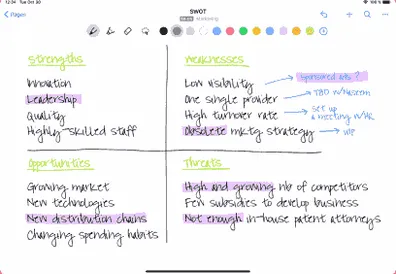 12:34 Tue Oct 30
100 %
Pages
SWOT
strengths
Innovation
Leadership
Quality
Highly-skilled staff
weaknesses
Low visibility
sponsored ads ?
One single provider
TBD w/Naseem
High turnover rate
set up a meeting w/HR
Obsolete mktg strategy
WIP
Opportunities
Growing market
New technologies
New distribution chains
Changing spending habits
Threats
High and growing nb of competitors
Few subsidies to develop business
Not enough in-house patent attorneys